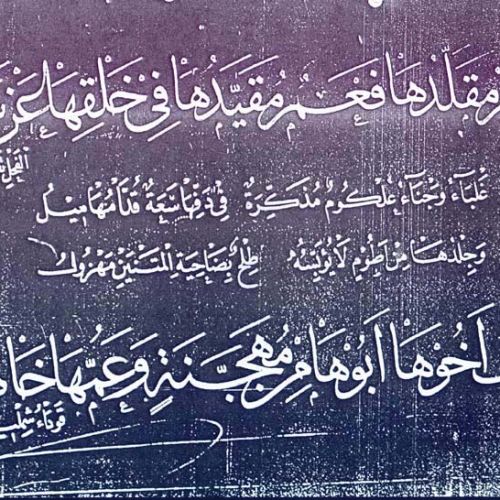 مُقَلَّدُهَا فَعْمٌ مُقَيَّدُهَا فِي خَلْقِهَا عَنْ
الفَحْلِ
غَلْبَاءُ وَجْنَاءُ عُلْكُومٌ مُذَكَّرَةٌ فِي دَفِّهَا سَعَةٌ قُدَّامُهَا مِيلُ
وَجِلْدُهَا مِنْ أَطُومٍ لَا يُؤَيِّسُهُ طِلْحٌ بِضَاحِيَةِ المَتْنَيْنِ مَهْزُولُ
أَخُوهَا أَبُوهَا مِنْ مُهَجَّنَةٍ وَعَمُّهَا
قَوْدَاءُ